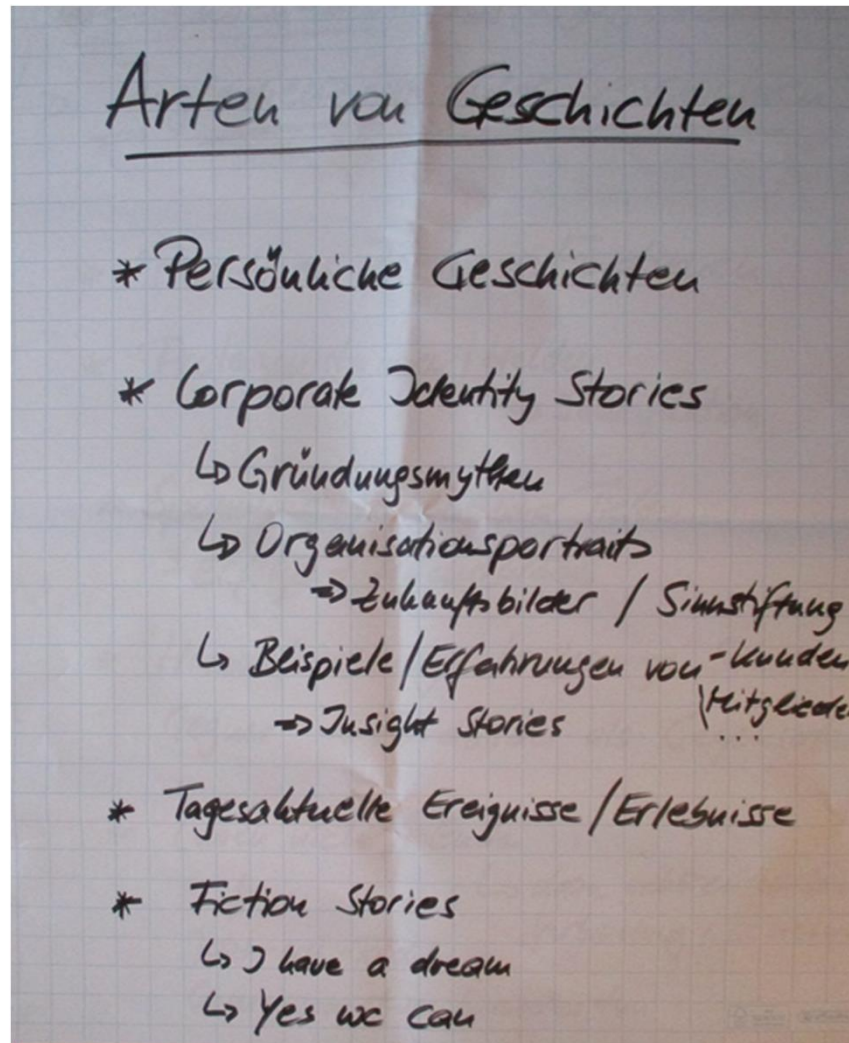 Arten von Geschichten
* Persönliche Geschichten
* Corporate Identity Stories
↳ Gründungsmythen
↳ Organisationsportraits
⇒ Zukunftsbilder / Sinnstiftung
↳ Beispiele / Erfahrungen von - Kunden
\ Mitglieder
⇒ Insight Stories ...
* Tagesaktuelle Ereignisse / Erlebnisse
* Fiction Stories
↳ I have a dream
↳ Yes we can